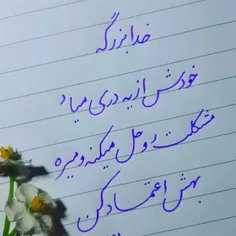 خدا بزرگه
خودش از یه دری میاد
مشکلت رو حل میکنه و میره
بهش اعتماد کن